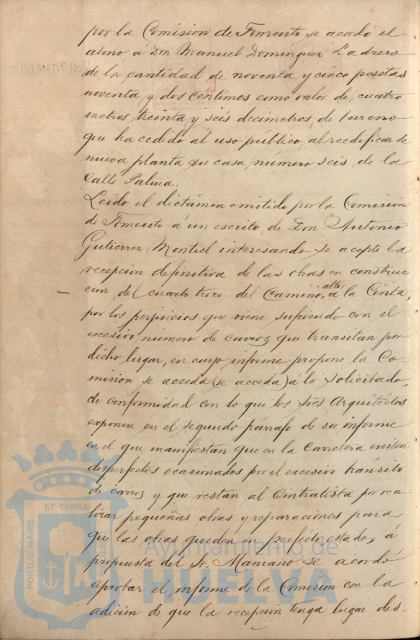 por la Comision de Fomento se acordó el
abono a Don Manuel Dominguez Ladrera
de la cantidad de noventa y cinco pesetas
noventa y dos centimos como valor de cuatro
metros treinta y seis decimetros de terreno
que ha cedido al uso publico, al reedificar de
nueva planta su casa numero seis, de la
Calle Palma.
Leido el dictámen emitido por la Comision
de Fomento á un escrito de Don Antonio
Gutierrez Montiel interesando se acepte la
recepcion definitiva de las obras en construc
cion del cuarto trozo del Camino alto á la Cinta,
por los perjuicios que viene sufriendo con el
excesivo número de carros que transitan por
dicho lugar, en cuyo informe propone la Co
mision se acceda (se acceda) á lo solicitado
de conformidad con lo que los Sres Arquitectos
exponen en el segundo parrafo de su informe
en el que manifiestan que en la Carretera existen
desperfectos ocasionados por el excesivo transito
de carros y que restan al Contratista por rea
lizar pequeñas obras y reparaciones para
que las obras queden en perfecto estado, á
propuesta del Sr. Manzano se acordó
aprobar el informe de la Comision con la
adicion de que la recepcion tenga lugar des
PORTUS MARIS ET TERRAE
Ayuntamiento de
HUELVA